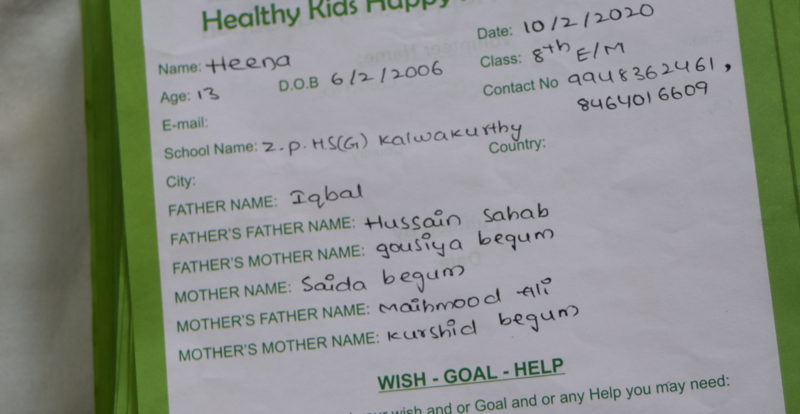 Healthy Kids Happy
Date: 10/2/2020
Name: Heena
Class: 8th E/M
Age: 13 D.O.B 6/2/2006
Contact No 9948362461,
8464016609
E-mail:
School Name: Z.P.HS(G) Kalwakurthy
Country:
City:
FATHER NAME: Iqbal
FATHER'S FATHER NAME: Hussain Sahab
FATHER'S MOTHER NAME: gousiya begum
MOTHER NAME: Saida begum
MOTHER'S FATHER NAME: Maihmood Ali
MOTHER'S MOTHER NAME: Kurshid begum
WISH - GOAL - HELP
wish and or Goal and or any Help you may need: